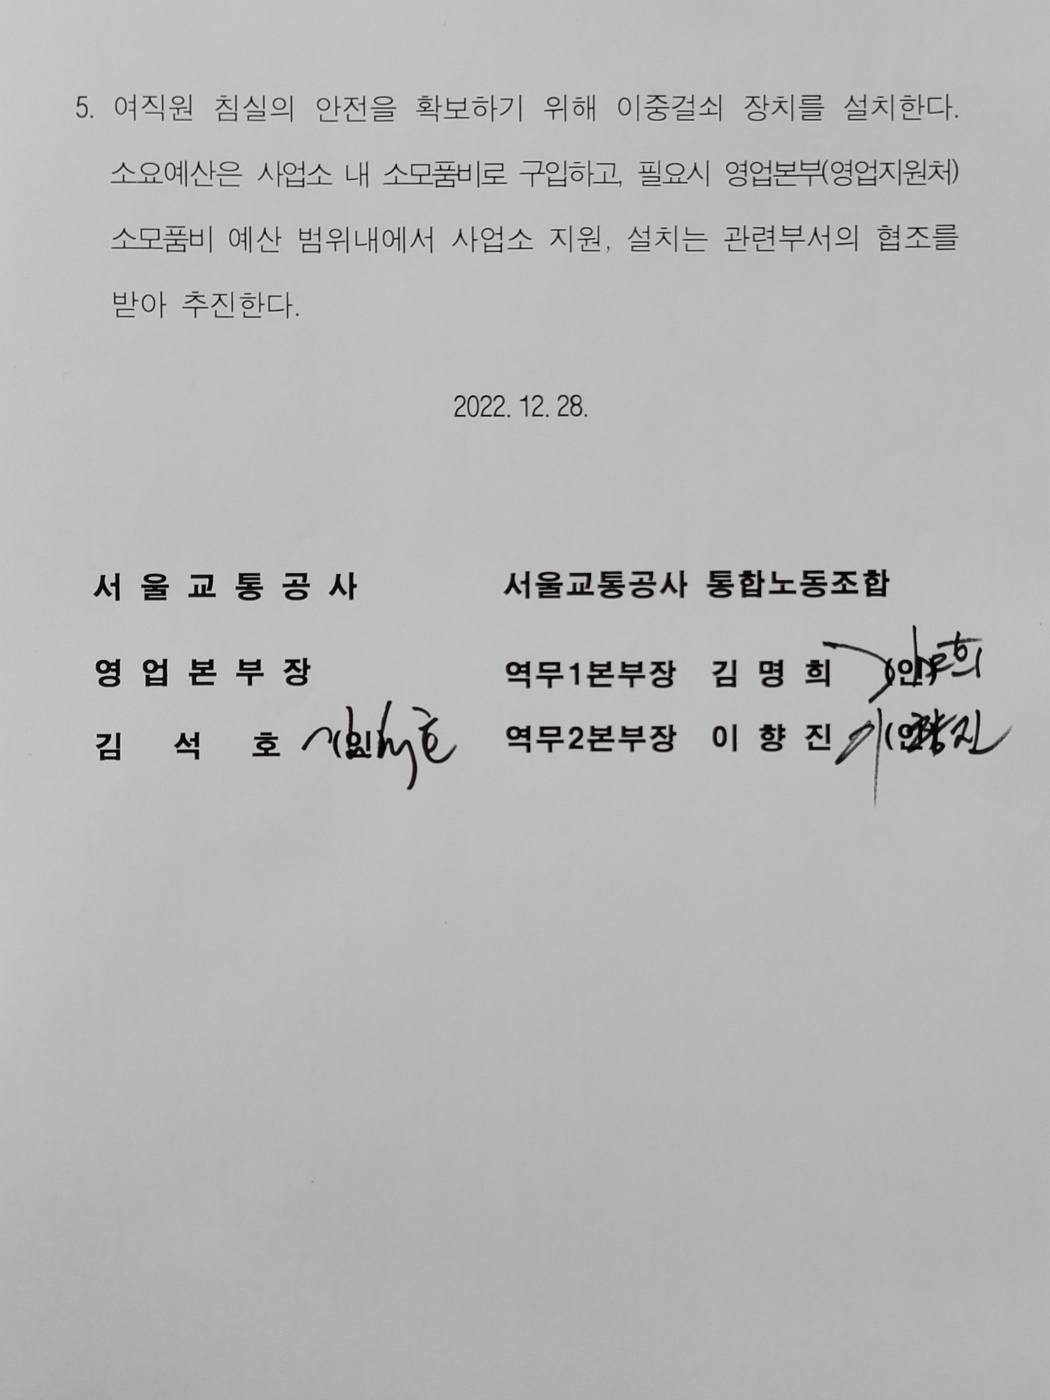 5. 여직원 침실의 안전을 확보하기 위해 이중걸쇠 장치를 설치한다.
소요예산은 사업소 내 소모품비로 구입하고, 필요시 영업본부(영업지원처)
소모품비 예산 범위내에서 사업소 지원, 설치는 관련부서의 협조를
받아 추진한다.
2022. 12. 28.
서 울 교 통 공 사
영 업 본 부 장
김 석 호 (인)
서울교통공사 통합노동조합
역무1본부장 김 명 희 (인)
역무2본부장 이 향 진 (인)